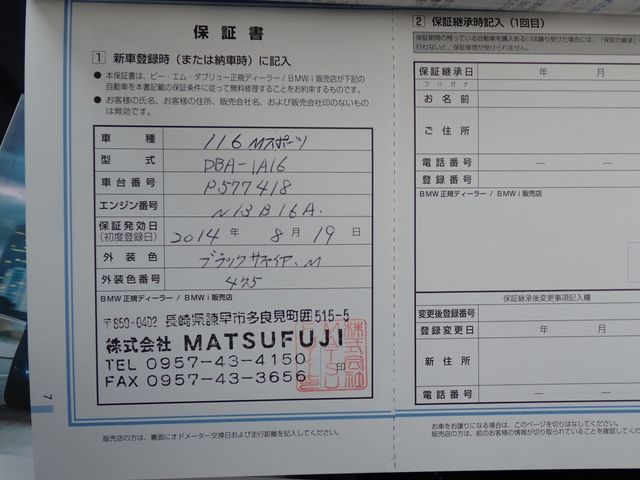 保証書
1 新車登録時(または納車時)に記入
● 本保証書は、ビー・エム・ダブリュー正規ディーラー/BMW i 販売店が下記の
自動車を本書記載の保証条件に従って無料修理することをお約束するものです。
● お客様の氏名、お客様の住所、販売会社名、および販売会社印のないもの
は無効です。
車種 116 Mスポーツ
型式 DBA-1A16
車台番号 P577418
エンジン番号 N13B16A.
保証発効日
(初度登録日) 2014年 8月 19日
外装色 ブラックサファイア.M
外装色番号 475
BMW 正規ディーラー / BMW i 販売店
〒859-0402 長崎県諫早市多良見町囲515-5
株式会社 MATSUFUJI
TEL 0957-43-4150
FAX 0957-43-3656 印
7
販売店の方は、裏面にオドメーター交換日および走行距離を記入してください。
2 保証継承時記入(1回目)
保証期間の残っている自動車を購入あるいは譲り受けた場合には、「保証の継承」
行わないと、保証修理が受けられません。
保証継承日 年 月
フリガナ
お名前
ご住所
電話番号 — —
登録番号
BMW 正規ディーラー / BMW i 販売店
保証継承後変更事項記入欄
変更後登録番号
登録変更日 年 月
新住所
電話番号 — —
お車をお譲りになる場合は、このページを切りはなしてください。
販売店の方は、前のお客様の情報が切り取られていることを確認してく